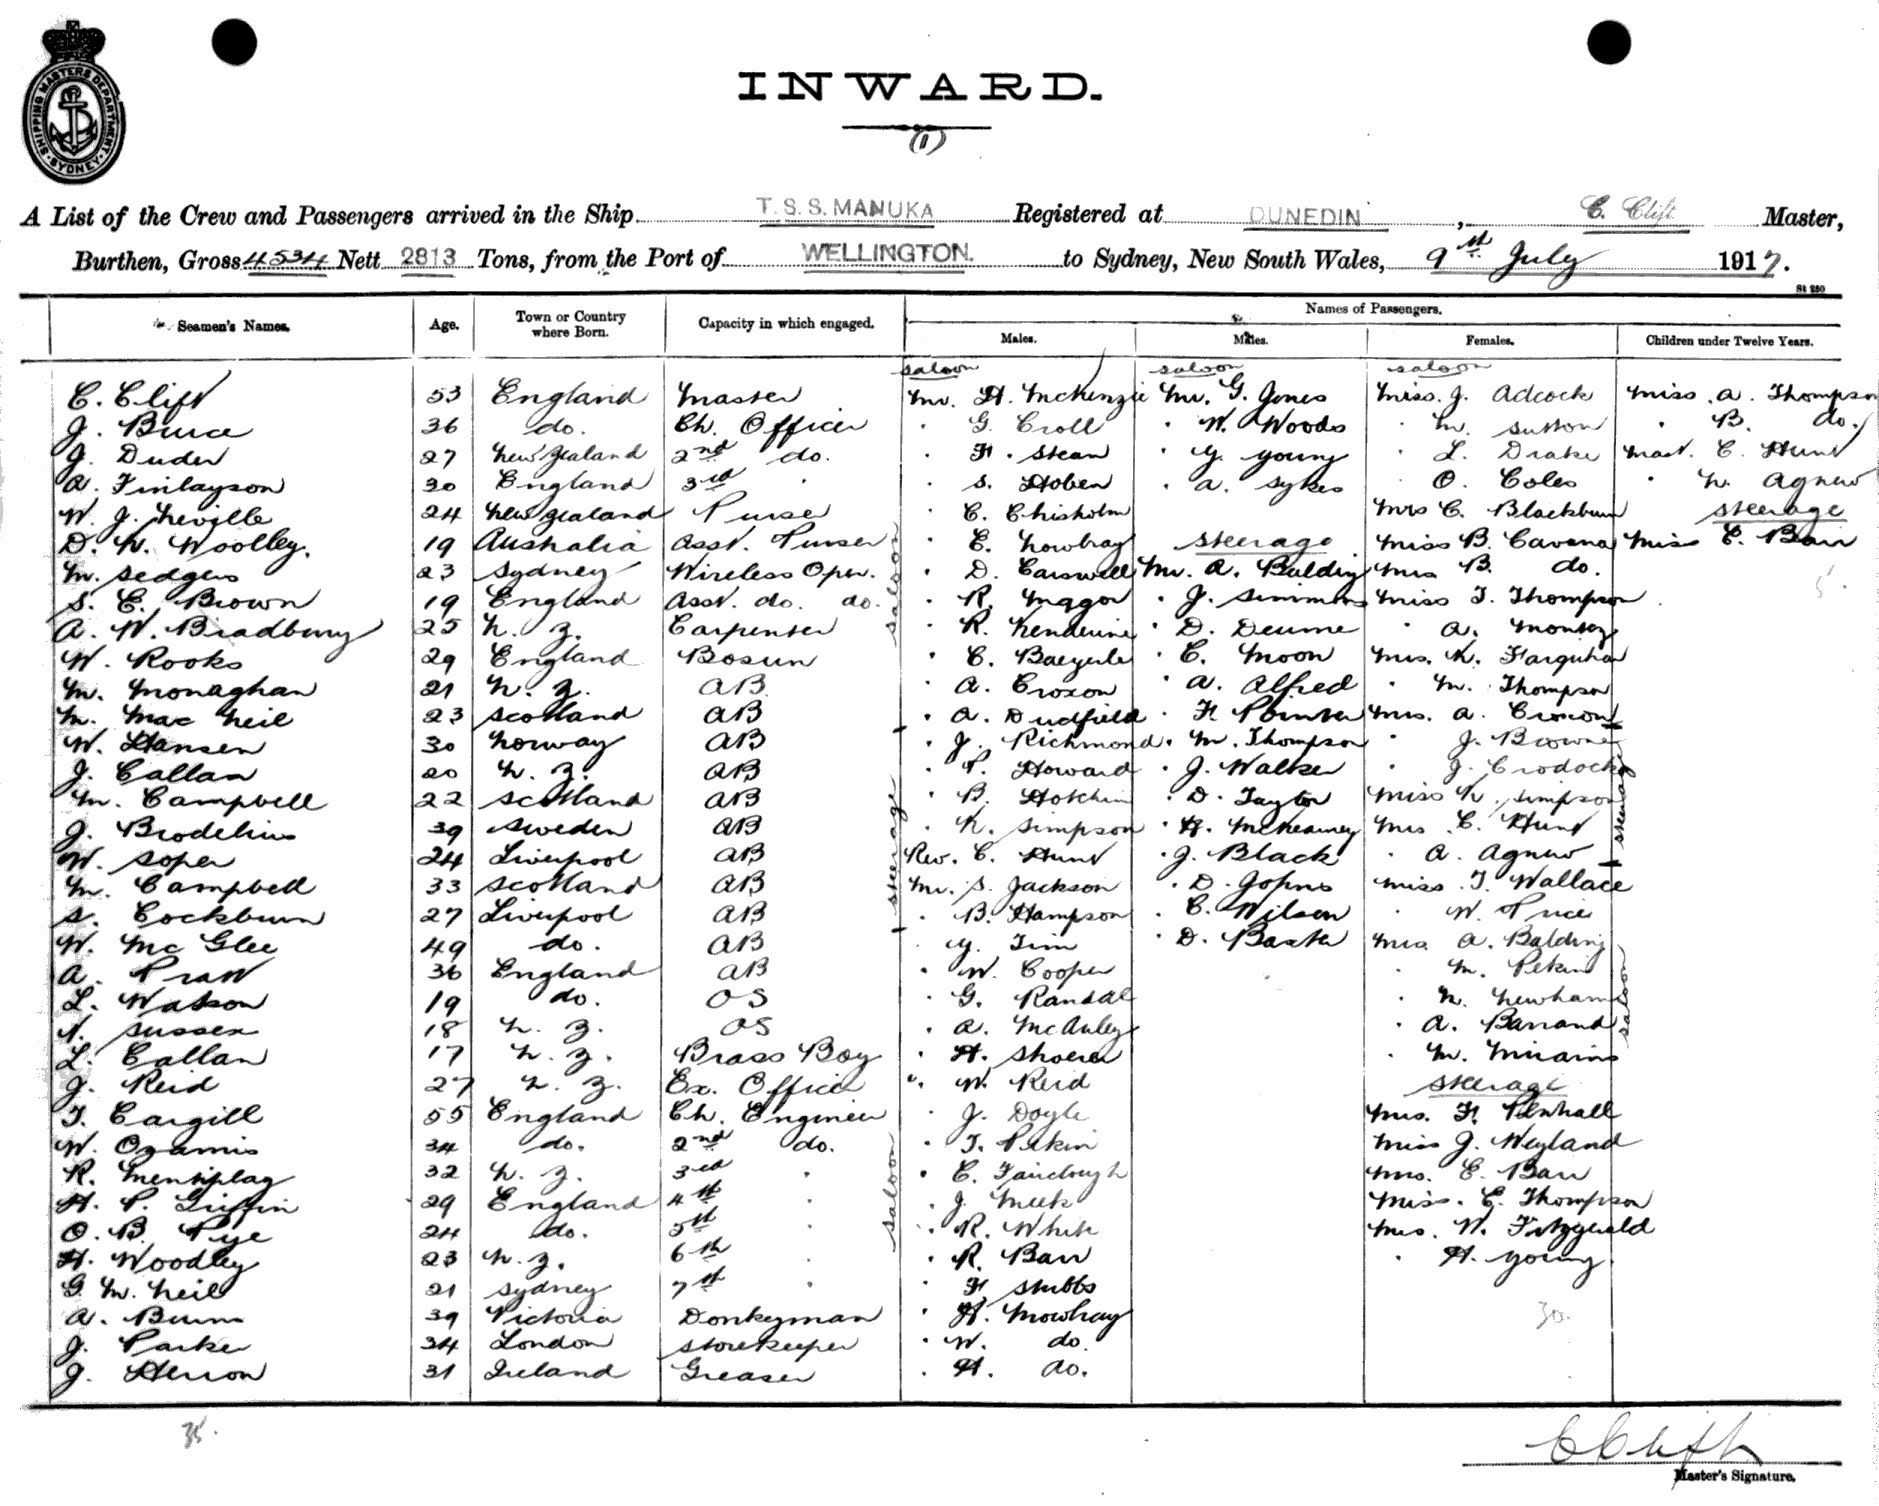 SHIPPING MASTERS DEPARTMENT SYDNEY
INWARD.
(1)
A List of the Crew and Passengers arrived in the Ship T.S.S. MANUKA Registered at DUNEDIN, C. Clift Master,
Burthen, Gross 4534 Nett 2813 Tons, from the Port of WELLINGTON. to Sydney, New South Wales, 9th July 1917.
St 230
Seamen's Names. Age. Town or Country where Born. Capacity in which engaged. Names of Passengers.
Males. Males. Females. Children under Twelve Years.
saloon saloon saloon
C. Clift 53 England Master Mr. H. McKenzie Mr. G. Jones Miss. J. Adcock Miss. A. Thompson
J. Bruce 36 do. Ch. Officer " G. Croll " W. Woods " M. Sutton " B. do.
J. Duder 27 New Zealand 2nd do. " F. Stean " G. Young " L. Drake Mast. C. Hunt
A. Finlayson 30 England 3rd " " S. Hoben " A. Sykes " O. Coles " N. Agnew
W. J. Neville 24 New Zealand Purser " C. Chisholm Mrs C. Blackburn steerage
D. N. Woolley. 19 Australia Asst. Purser " E. Mowbray steerage Miss B. Cavana Miss E. Barr
M. Sedgers 23 Sydney Wireless Oper. " D. Carswell Mr. A. Balding Mrs B. do.
S. C. Brown 19 England Asst. do. do. " R. " J. Simmons Miss T. Thompson
A. W. Bradbury 25 N. Z. Carpenter " R. " D. " A.
W. Rooks 29 England Bosun " C. " C. Moon Mrs. N. Farquhar
M. Monaghan 21 N. Z. AB " A. Croxon " A. Alfred " M. Thompson
M. Mac Neil 23 Scotland AB " A. Dudfield " F. Pointer Mrs. A. Croxon
W. Hansen 30 Norway AB " J. Richmond " M. Thompson " J. Browne
J. Callan 20 N. Z. AB " P. Howard " J. Walker " J. Crodock
M. Campbell 22 Scotland AB " B. Hotchin " D. Taylor Miss N. Simpson
J. Brodelius 39 Sweden AB " N. Simpson " H. McKearney Mrs C. Hunt
W. Soper 24 Liverpool AB Rev. C. Hunt " J. Black " A. Agnew
M. Campbell 33 Scotland AB Mr. S. Jackson " D. Johns Miss T. Wallace
S. Cockburn 27 Liverpool AB " B. Hampson " C. Wilson " W. Price
W. Mc Glee 49 do. AB " Y. Tim " D. Baxter Mrs A. Balding
A. Pratt 36 England AB " W. Cooper " M. Pekin
L. Watson 19 do. OS " G. Randal " N. Newham
N. Sussex 18 N. Z. OS " A. McAuley " A. Barrand
L. Callan 17 N. Z. Brass Boy " H. Shoerer " M. Mirains
J. Reid 27 N. Z. Ex. Officer " W. Reid steerage
T. Cargill 55 England Ch. Engineer " J. Doyle Mrs. F. Penhall
W. 34 do. 2nd do. " T. Pekin Miss J. Weyland
R. Mentiplay 32 N. Z. 3rd " " C. Fairclough Mrs. E. Barr
H. P. Griffin 29 England 4th " " J. Meek Miss. C. Thompson
O. B. Pye 24 do. 5th " " R. White Mrs. W. Fitzgerald
H. Woodley 23 N. Z. 6th " " R. Barr " H. Young
G. M. Neil 21 Sydney 7th " " F. Stubbs
A. Burns 39 Victoria Donkeyman " H. Mowbray 30.
J. Parker 34 London Storekeeper " W. do.
J. Herron 31 Ireland Greaser " H. do.
saloon
steerage
saloon
steerage
saloon
5
35.
C Clift
Master's Signature.